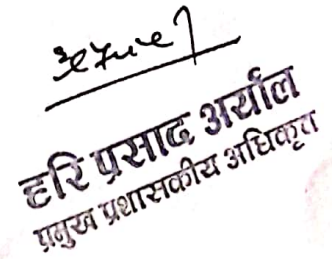 हरि प्रसाद अर्याल
प्रमुख प्रशासकीय अधिकृत